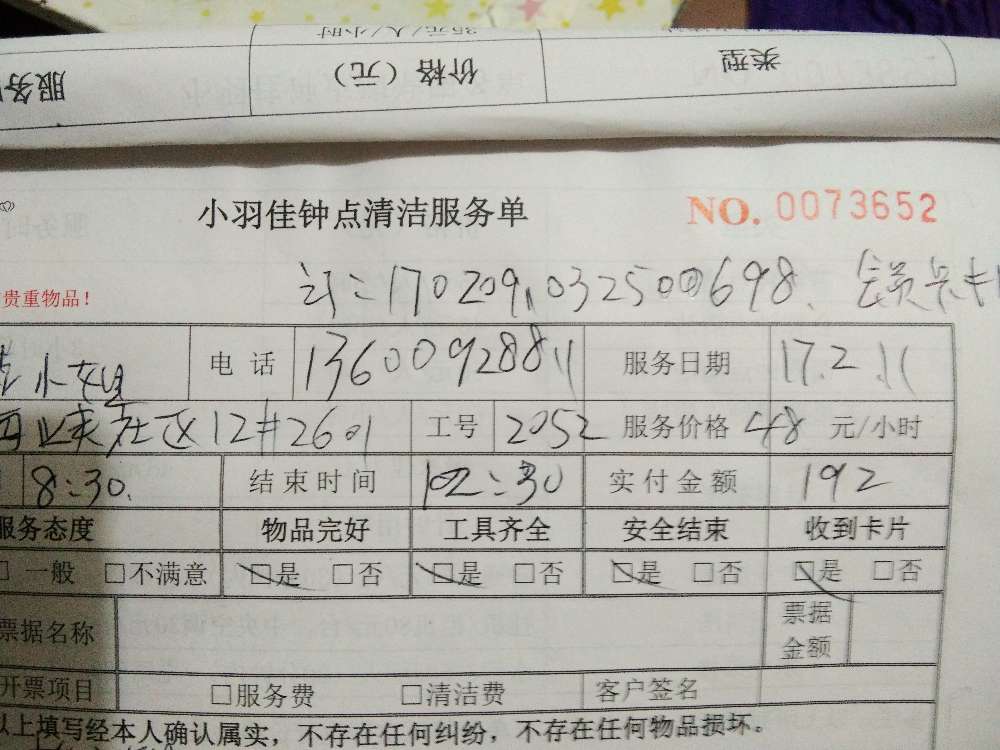 35元/人/小时
类型 价格（元） 服务
小羽佳钟点清洁服务单 NO. 0073652
贵重物品！ 订：170209,032500698. 会员
小姐 电话 13600928811 服务日期 17.2.11
12#2601 工号 2052 服务价格 48 元/小时
8:30. 结束时间 12:30 实付金额 192
服务态度 物品完好 工具齐全 安全结束 收到卡片
□一般 □不满意 □是 □否 □是 □否 □是 □否 □是 □否
票据名称 票据金额
开票项目 □服务费 □清洁费 客户签名
以上填写经本人确认属实，不存在任何纠纷，不存在任何物品损坏。